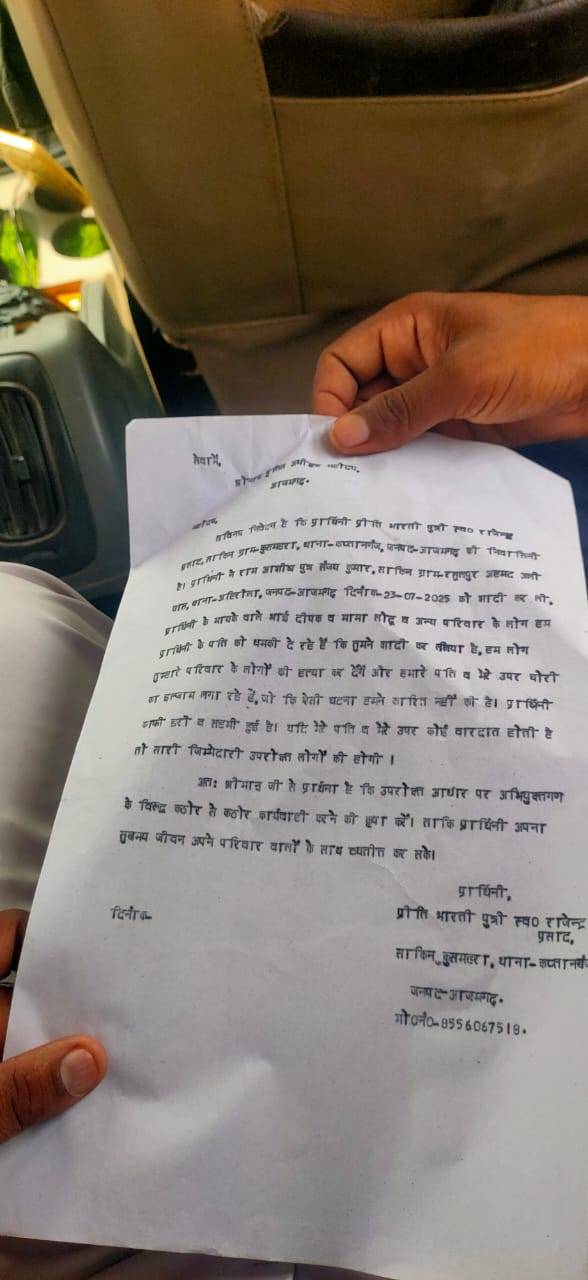 सेवामें,
श्रीमान पुलिस अधीक्षक महोदय,
आजमगढ़.
महोदय,
सविनय निवेदन है कि प्रार्थिनी प्रीति भारती पुत्री स्व0 राजेन्द्र
प्रसाद, साकिन ग्राम-कुसमहरा, थाना-कप्तानगंज, जनपद-आजमगढ़ की निवासिनी
है। प्रार्थिनी ने राम आशीष पुत्र संजय कुमार, साकिन ग्राम-रसूलपुर अहमद अली
थाना-अहिरौला, जनपद-आजमगढ़ दिनांक-23-07-2025 को शादी कर ली,
प्रार्थिनी के मायके वाले भाई दीपक व मामा व अन्य परिवार के लोग हम
प्रार्थिनी के पति को धमकी दे रहे हैं कि तुमने शादी कर लिया है, हम लोग
तुम्हारे परिवार के लोगों की हत्या कर देंगे और हमारे पति व मेरे उपर चोरी
का इल्जाम लगा रहे हैं, जो कि ऐसी घटना हमने कारित नहीं की है। प्रार्थिनी
काफी डरी व सहमी हुई है। यदि मेरे पति व मेरे उपर कोई वारदात होती है
तो सारी जिम्मेदारी उपरोक्त लोगों की होगी ।
अतः श्रीमान् जी से प्रार्थना है कि उपरोक्त आधार पर अभियुक्तगण
के विरूद्ध कठोर से कठोर कार्यवाही करने की कृपा करें। ताकि प्रार्थिनी अपना
सुखमय जीवन अपने परिवार वालों के साथ व्यतीत कर सके।
प्रार्थिनी,
दिनांक-
प्रीति भारती पुत्री स्व0 राजेन्द्र
प्रसाद,
साकिन कुसमहरा, थाना-कप्तानगंज
जनपद-आजमगढ़.
मो0नं0-8556067518.